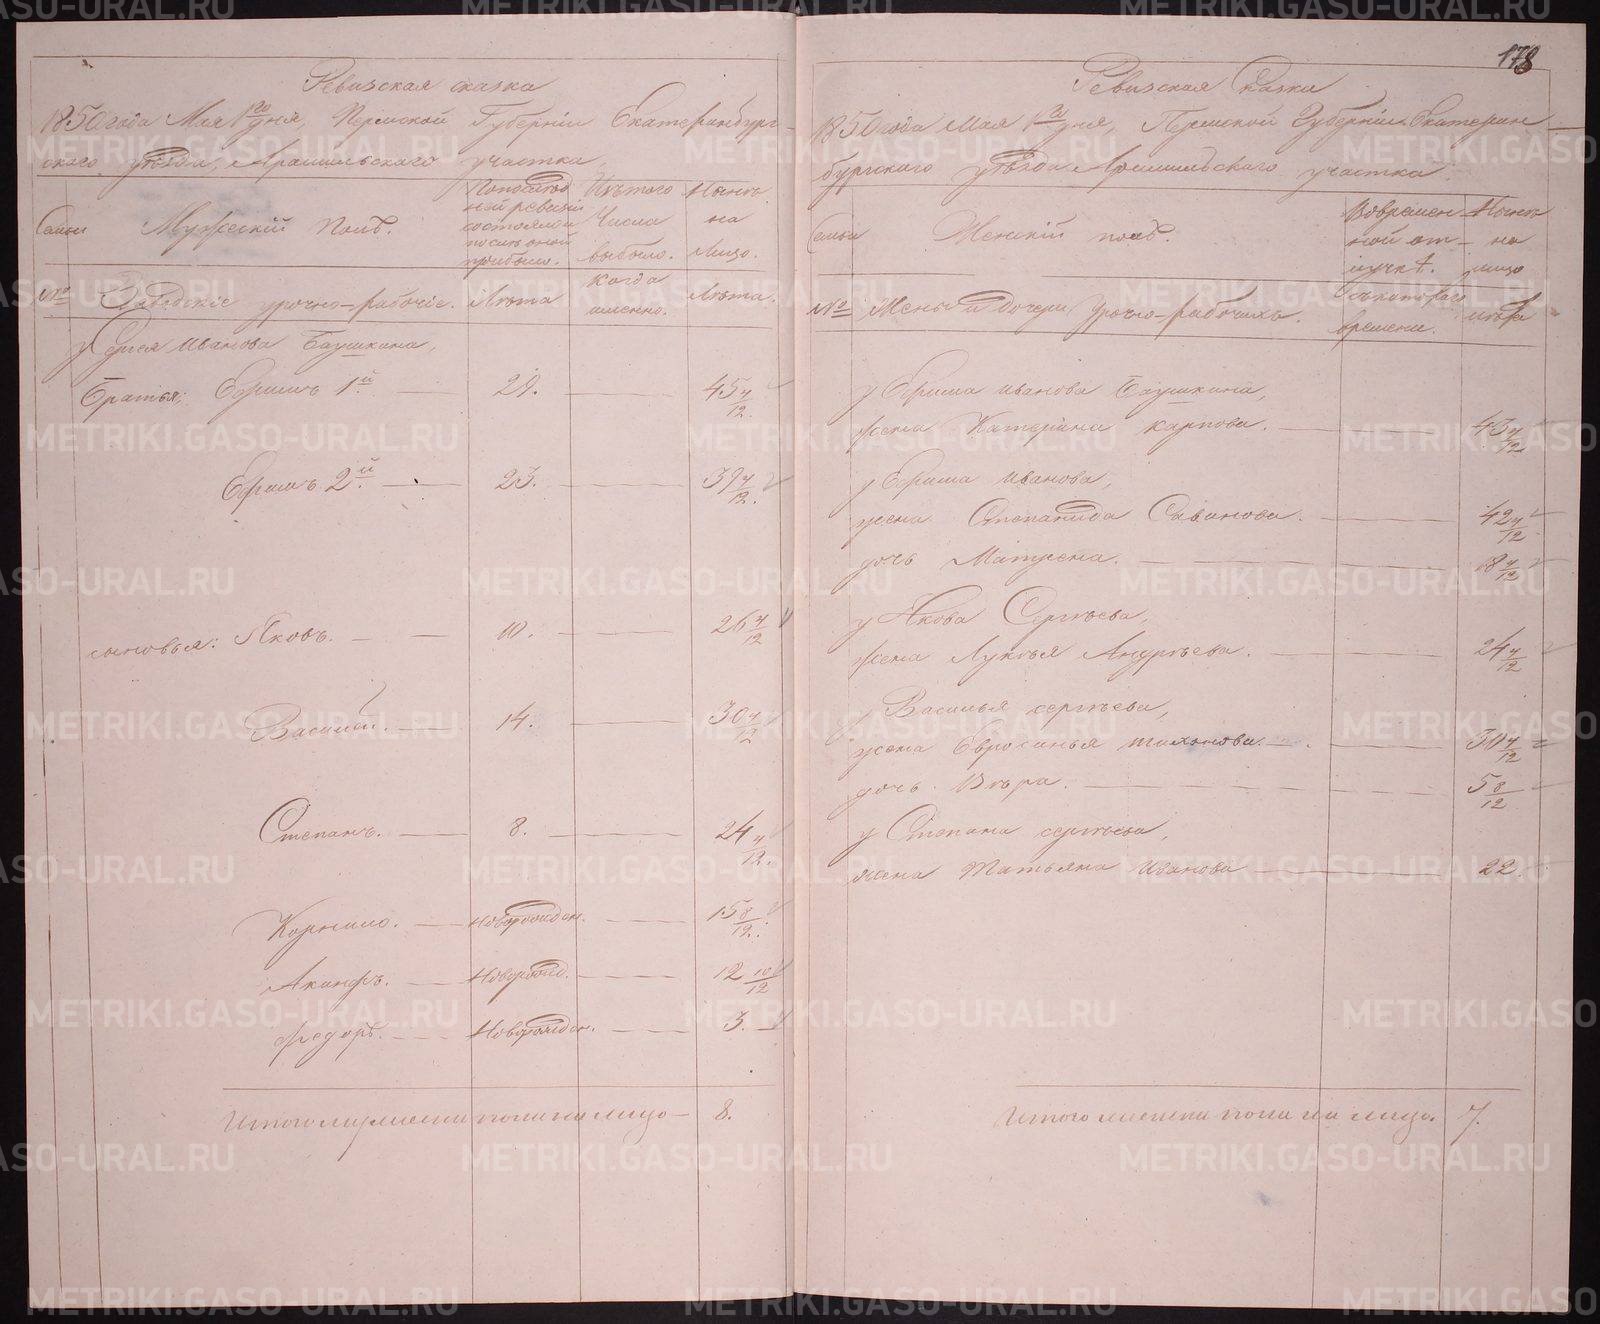 Ревизская сказка
1850 года Мая 1го дня, Пермской Губернии Екатеринбург-
скаго уезда, Арамильскаго участка,
Семьи
Мужеский полъ.
По последней ревизии состояло и после оной прибыло.
Изъ того числа выбыло.
Ныне на лицо.
№
Заводские урочно-рабочие.
Лета
Когда именно.
Лета.
у Сергея Иванова Баушкина,
Братья: Ефимъ 1й 29. 45 7/12
Ефимъ 2й 23. 39 7/12
сыновья: Яковъ. 10. 26 7/12
Василий. 14. 30 7/12
Степанъ. 8. 24 7/12
Корнило. новорожден. 15 8/12
Акинфъ. новорожд. 12 10/12
Федоръ. новорожден. 3.
Итого мужеска пола на лицо 8.
178
Ревизская Сказка
1850 года Мая 1го дня, Пермской Губернии Екатерин
бургскаго уезда Арамильскаго участка.
Семьи
Женский полъ.
Во временной отлучке.
Ныне на лицо
№
Жены и дочери Урочно-рабочихъ.
Съ котораго времени.
лета
у Ефима Иванова Баушкина,
жена Катерина Карпова. 45 7/12
у Ефима Иванова,
жена Степанида Савинова. 42 7/12
дочь Матрена. 18 7/12
у Якова Сергеева,
жена Лукья Андреева. 24 7/12
у Василья Сергеева,
жена Евросинья Тихонова. 30 7/12
дочь Вера. 5 8/12
у Степана Сергеева,
жена Татьяна Иванова 22.
Итого женска пола на лицо. 7.
METRIKI.GASO-URAL.RU